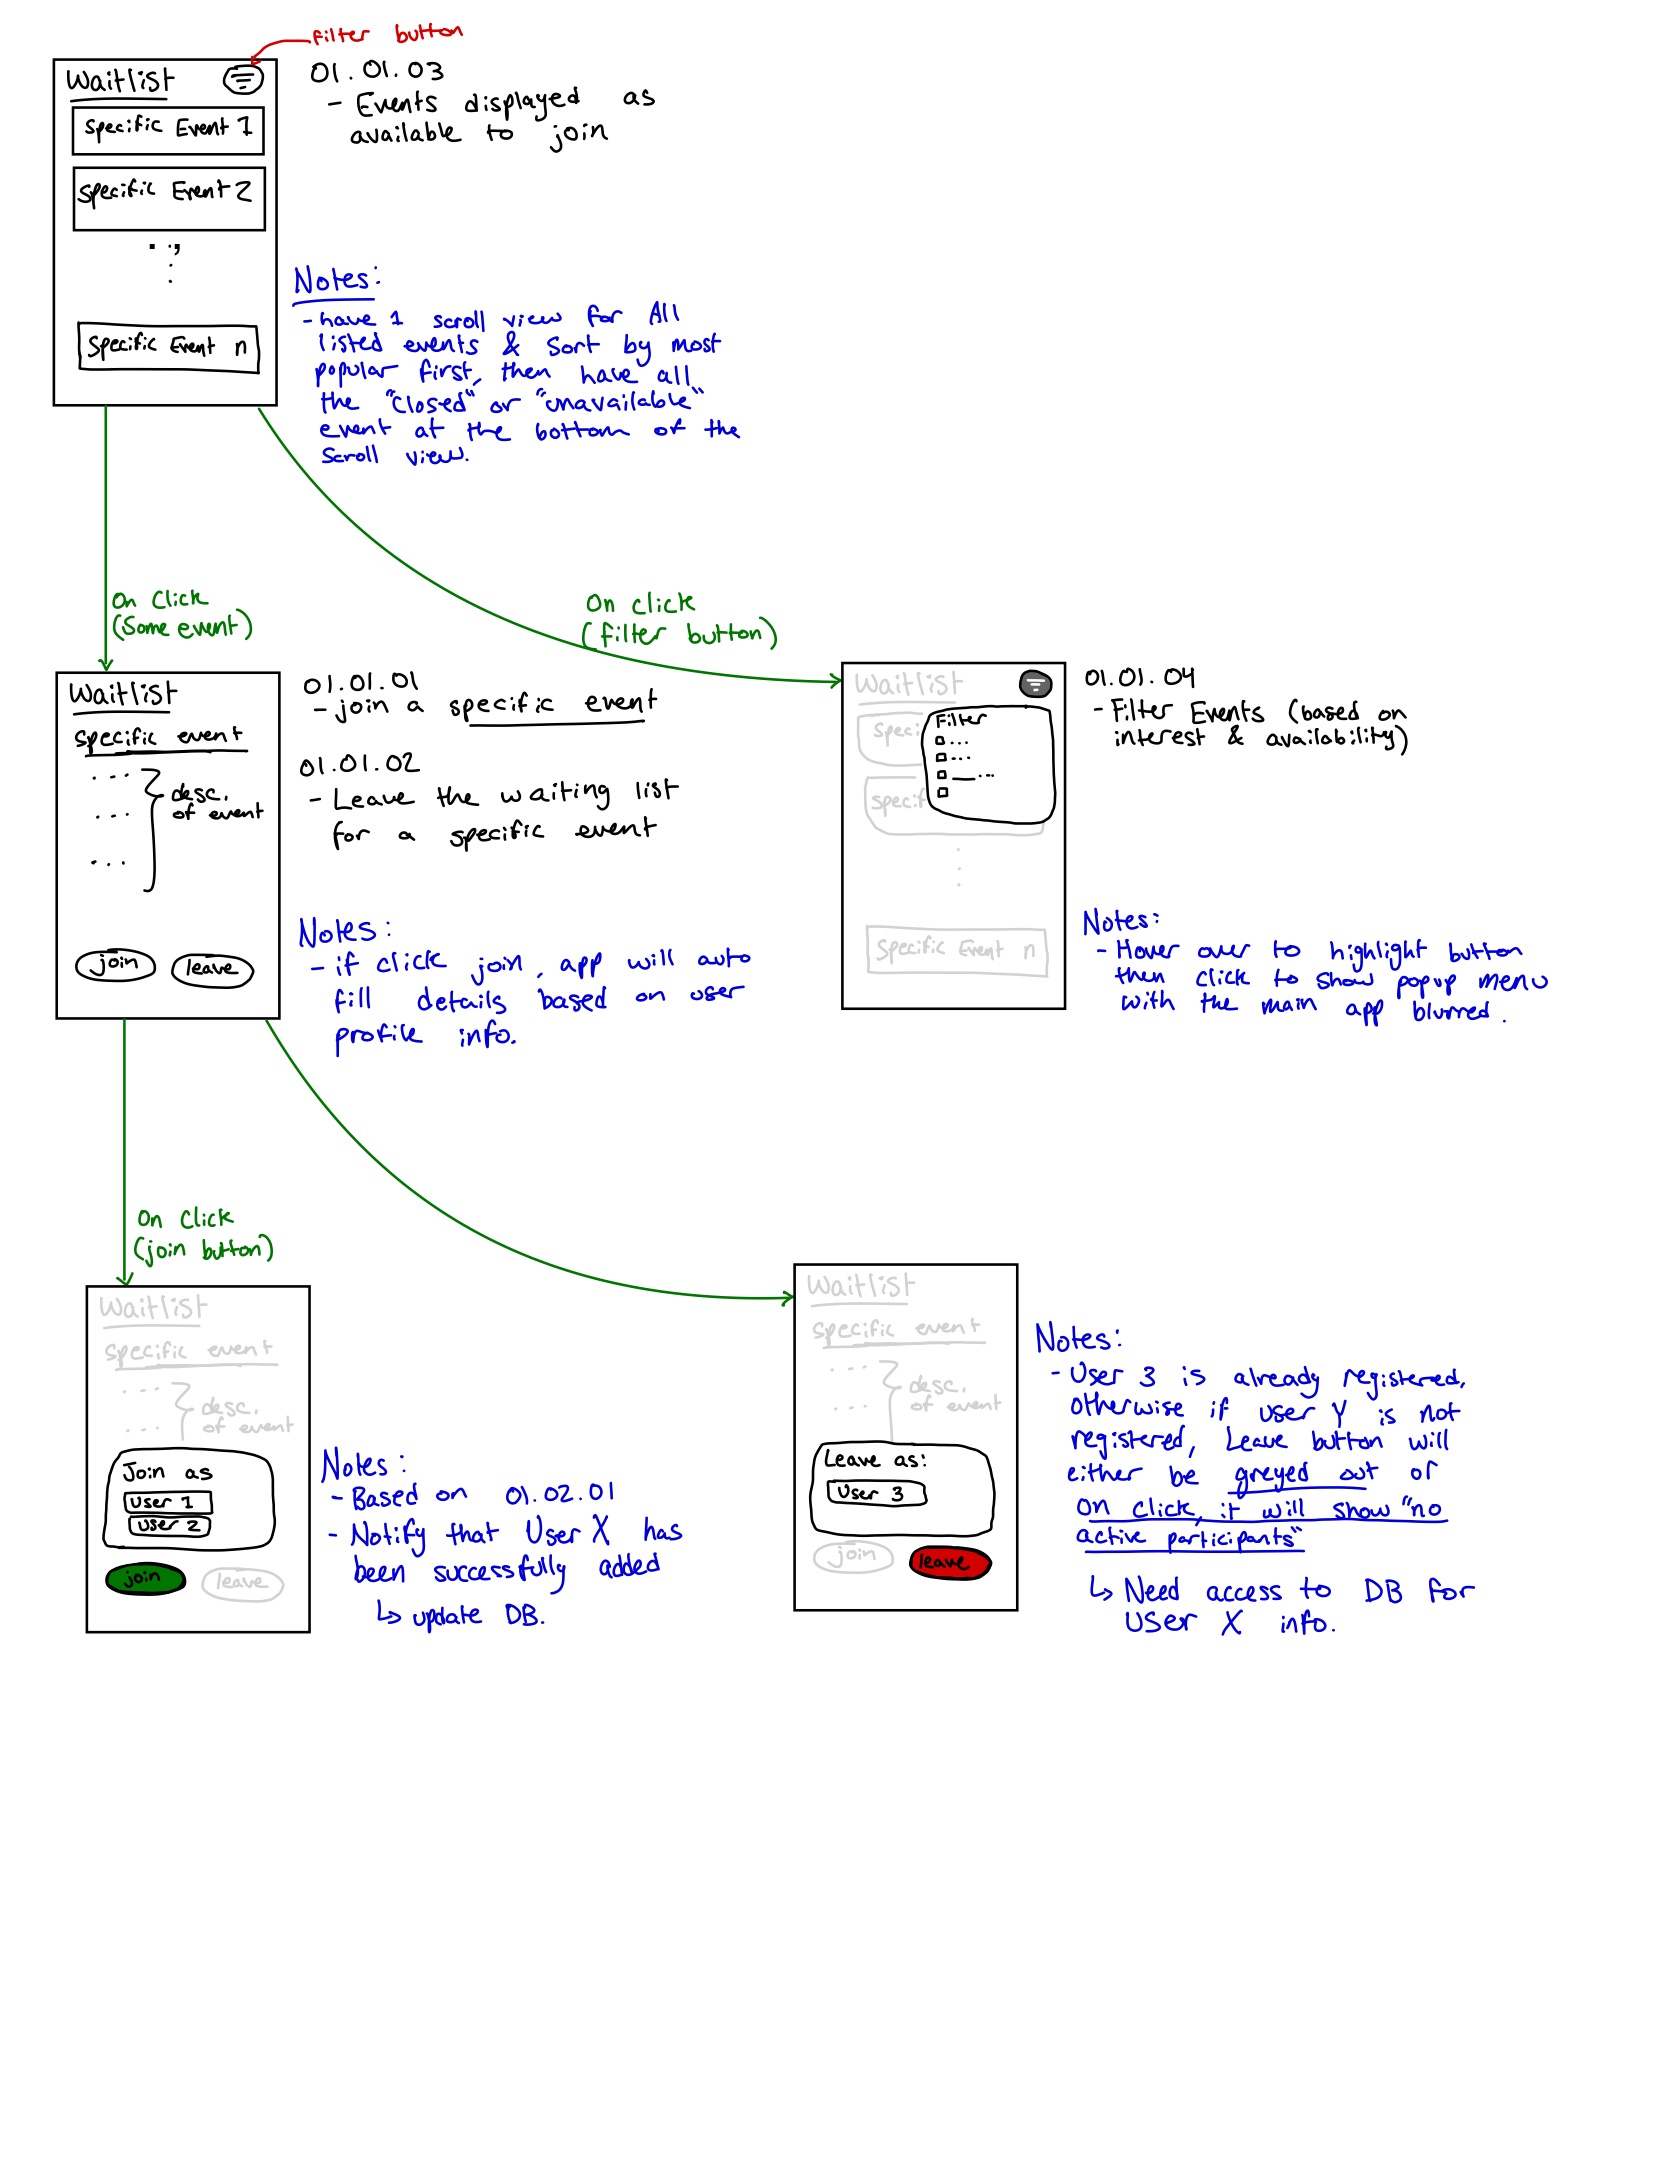 filter button
Waitlist
Specific Event 1
Specific Event 2
Specific Event n
01.01.03
- Events displayed as
available to join
Notes:
- have 1 scroll view for All
listed events & Sort by most
popular first, then have all
the "Closed" or "unavailable"
event at the bottom of the
Scroll view.
On Click
(Some event)
On click
(filter button)
Waitlist
Specific event
desc.
of event
join
leave
01.01.01
- join a specific event
01.01.02
- Leave the waiting list
for a specific event
Notes:
- if click join, app will auto
fill details based on user
profile info.
Waitlist
Speci
Specif
Specific Event n
Filter
01.01.04
- Filter Events (based on
interest & availability)
Notes:
- Hover over to highlight button
then click to show popup menu
with the main app blurred.
On Click
(join button)
Waitlist
Specific event
desc.
of event
Join as
User 1
User 2
join
leave
Notes:
- Based on 01.02.01
- Notify that User X has
been successfully added
↳ update DB.
Waitlist
Specific event
desc.
of event
Leave as:
User 3
join
leave
Notes:
- User 3 is already registerred,
otherwise if user Y is not
registered, Leave button will
either be greyed out or
on click, it will show "no
active participants"
↳ Need access to DB for
User X info.